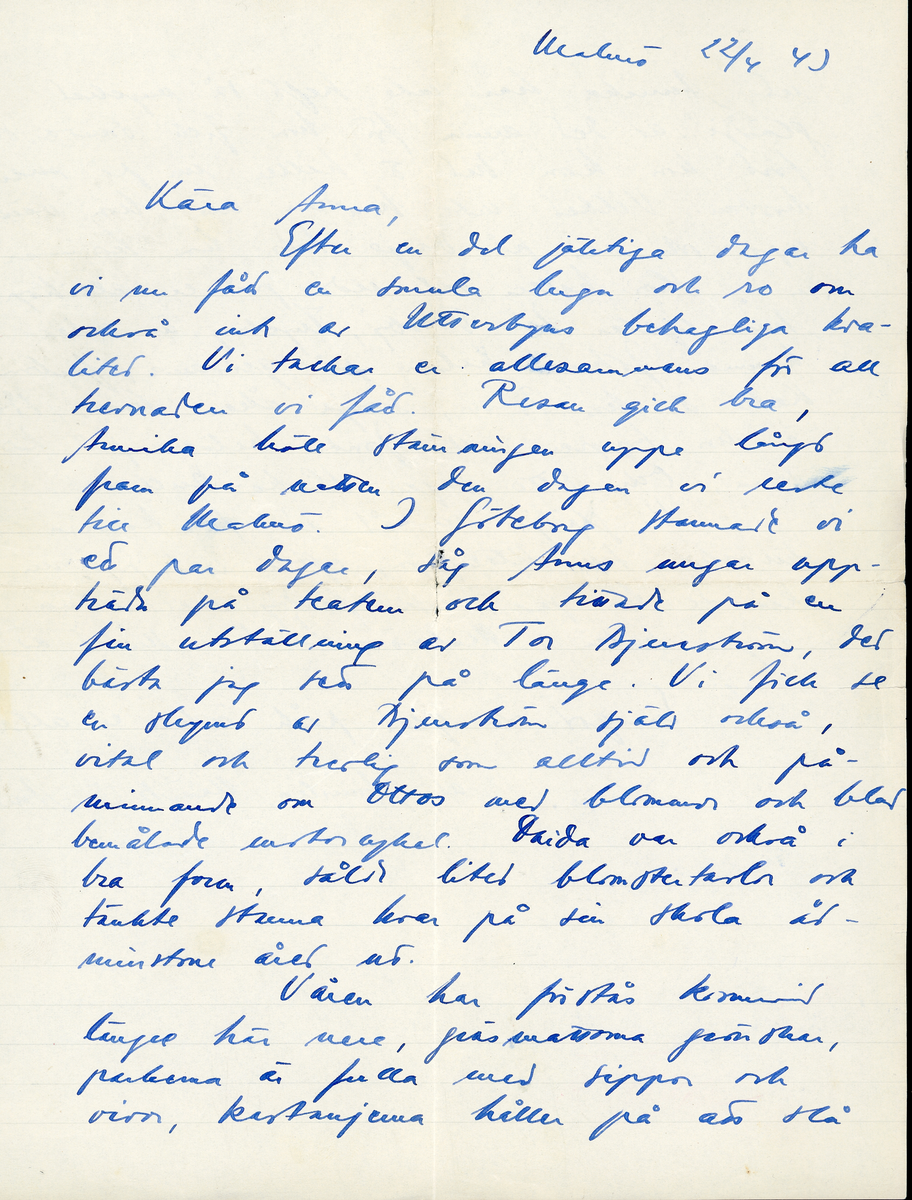 Malmö 22/4 43
Kära Anna,
Efter en del jäktiga dagar ha
vi nu fått en smula lugn och ro om
också inte av Utterbyns behagliga kva-
litet. Vi tackar er allesammans för all
trevnaden vi fått. Resan gick bra,
Annika höll stämningen uppe långt
fram på natten den dagen vi reste
till Malmö. I Göteborg stannade vi
ett par dagar, såg Anns ungar upp-
träda på teatern och tittade på en
fin utställning av Tor Bjurström, det
bästa jag sett på länge. Vi fick se
en skymt av Bjurström själv också,
vital och trevlig som alltid och på-
minnande om Ottos med blommor och blad
bemålade motorcykel. Daida var också i
bra form, sålde litet blomstertavlor och
tänkte stanna kvar på sin skola åt-
minstone året ut.
Våren har förstås kommit
längre här nere, gräsmattorna grönskar,
parkerna är fulla med sippor och
vivor, kastanjerna håller på att slå